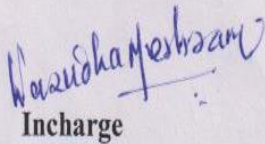 Wasudha Meshram
Incharge